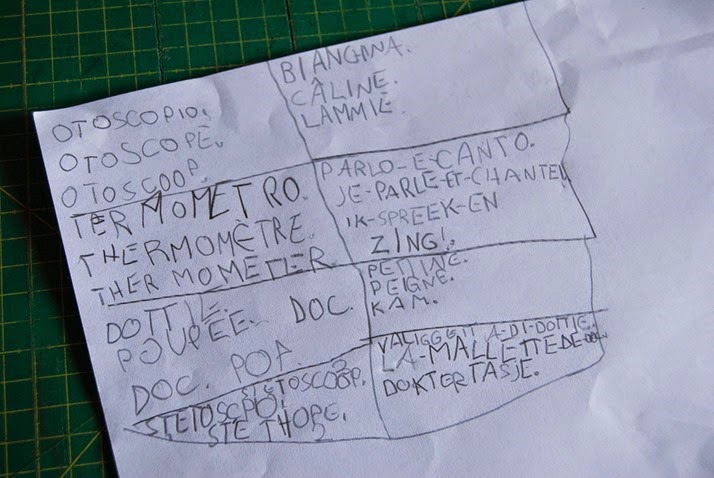 OTOSCOPIO.
OTOSCOPE.
OTOSCOOP.
TERMOMETRO.
THERMOMÈTRE.
THERMOMETER.
DOTTIE.
POUPÉE. DOC.
DOC. POP.
STETOSCOOP.
STETOSCPIO.
STETHOPE.
BIANCHINA.
CÂLINE.
LAMMIE.
PARLO-E-CANTO.
JE-PARLE-ET-CHANTE!
IK-SPREEK-EN
ZING!.
PETTINE.
PEIGNE.
KAM.
VALIGGETTA-DI-DOTTIE.
LA-MALLETTE-DE-
DOKTERTASJE.